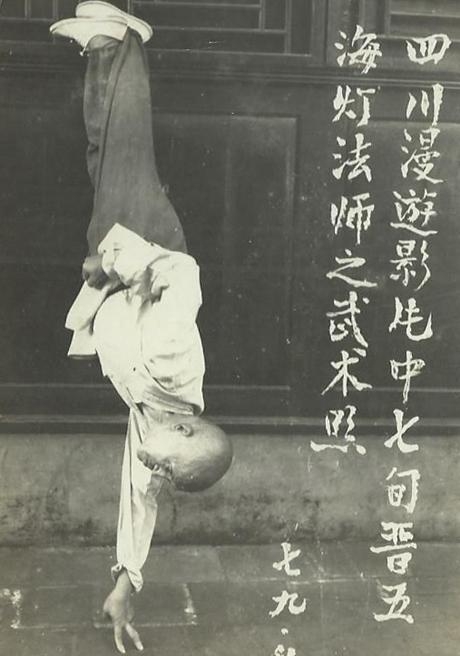 四川漫遊影片中七旬晋五
海灯法师之武术照
七九.